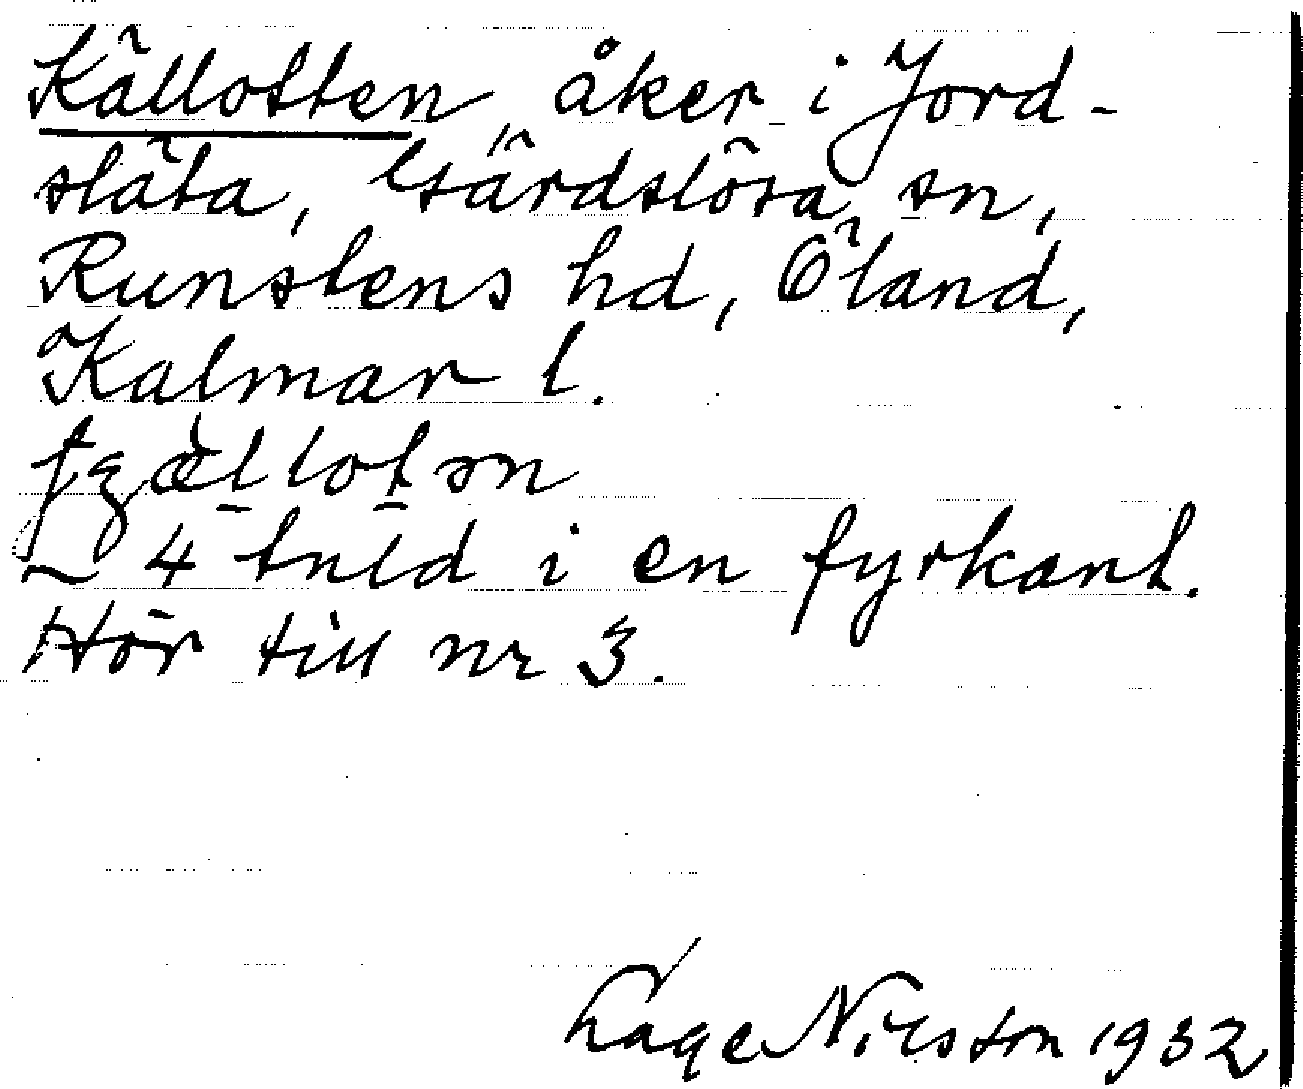 Källotten, åker i Jord-
släta, Gärdslösa sn,
Runstens hd, Öland,
Kalmar l.
4 tnld i en fyrkant.
Hör till nr 3.
Nilsson 1932